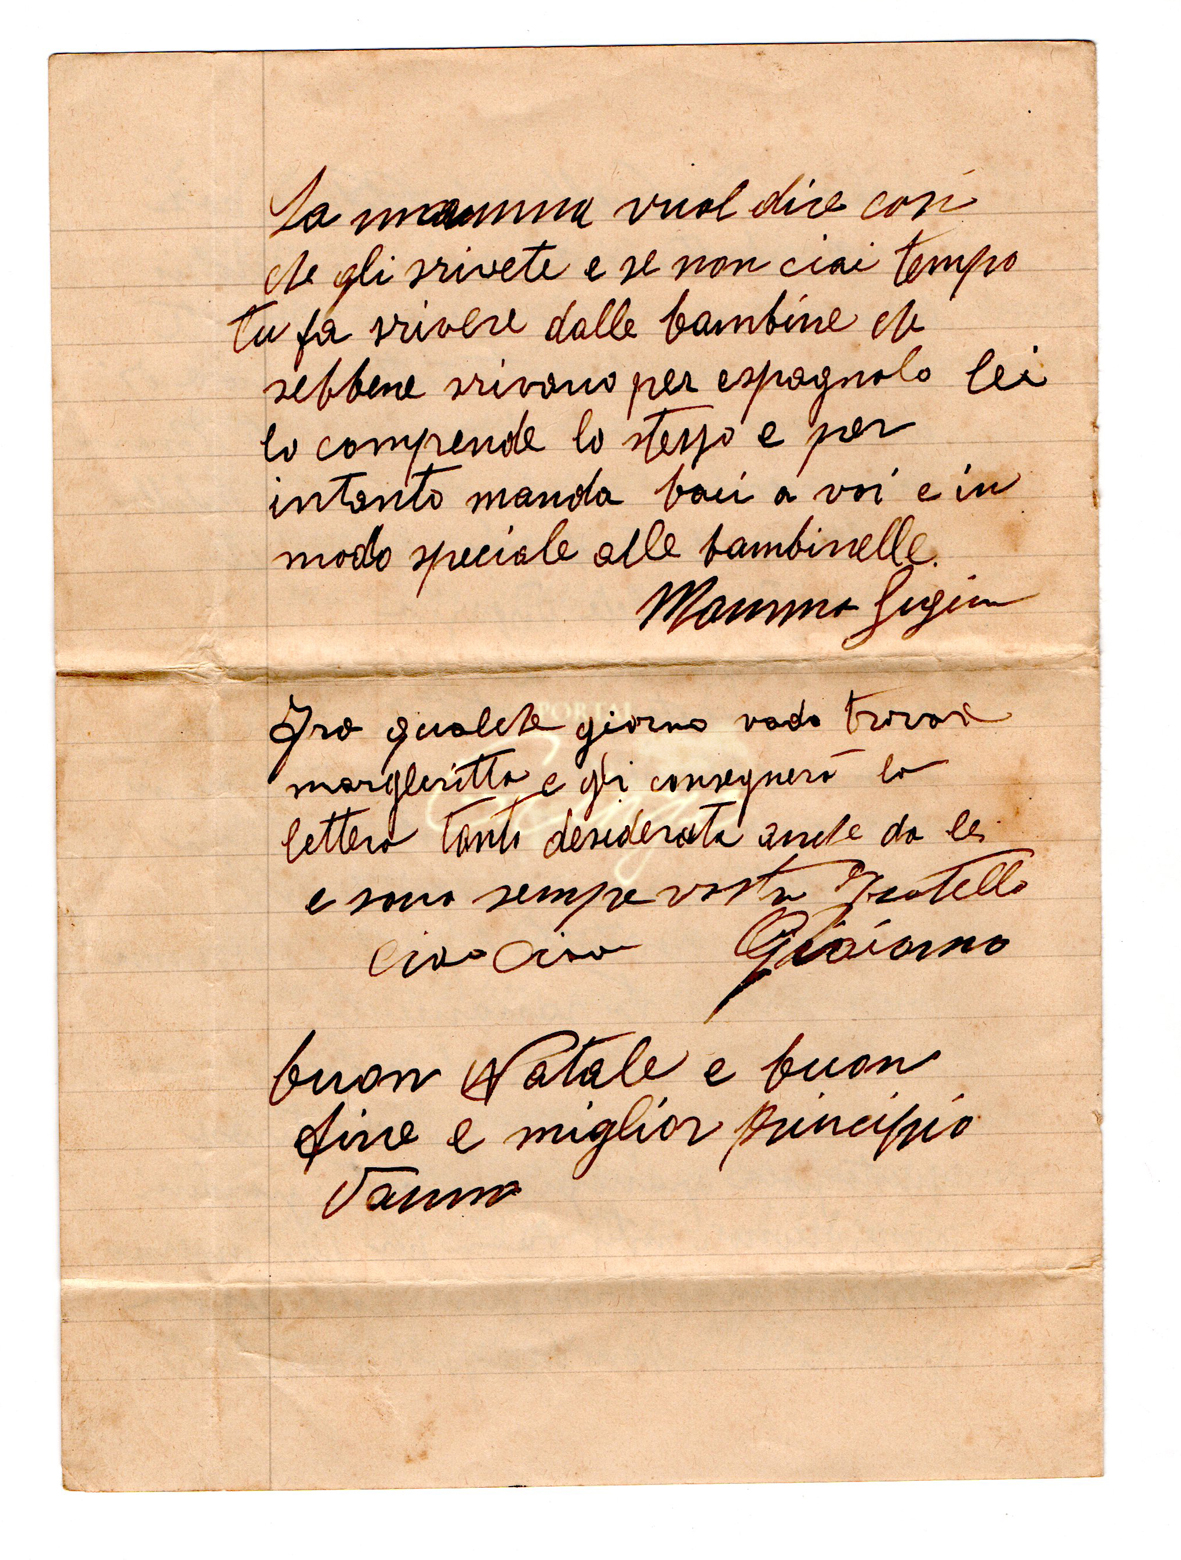 La mamma vuol dire così
che gli srivete e se non ciai tempo
tu fa srivere dalle bambine che
sebbene srivono per espagnolo lei
lo comprende lo stesso e per
intanto manda baci a voi e in
modo speciale alle bambinelle.
Mamma Gigin
Fra qualche giorno vado trovar
PORTAL
margheritta e gli consegnerò la
lettera tanto desiderata anche da lei
e sono sempre vostro Fratello
Ciao Ciao
buon Natale e buon
fine e miglior principio
d'anno